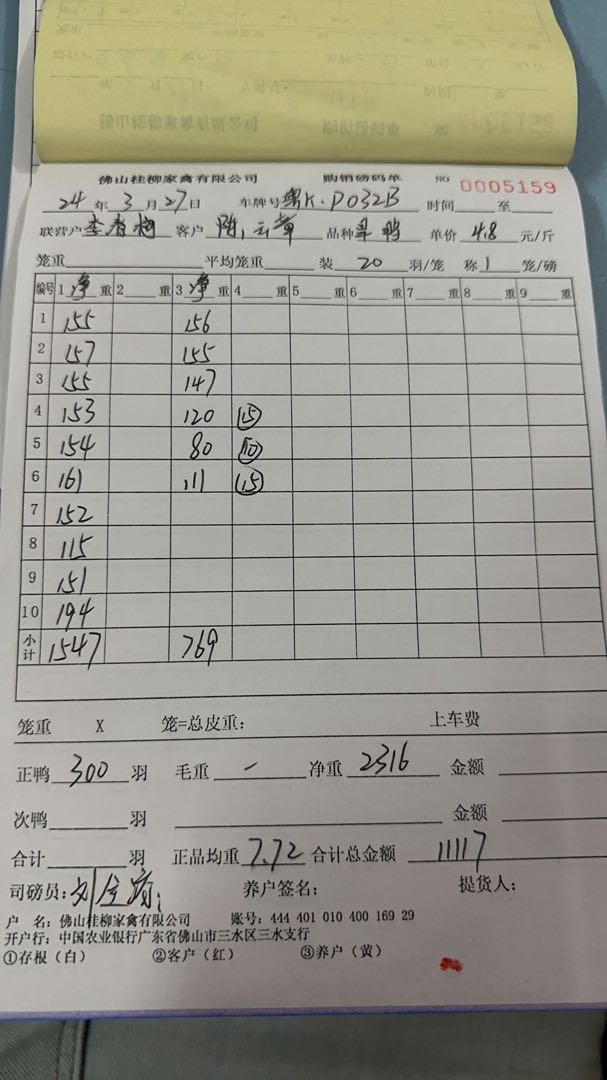 佛山桂柳家禽有限公司 购销磅码单 NO 0005159
24 年 3 月 27 日 车牌号 粤K·D032B 时间 至
联营户 李 客户 陈 品种 鸭 单价 4.8 元/斤
笼重 平均笼重 装 20 羽/笼 称 1 笼/磅
编号 1 净 重 2 重 3 净 重 4 重 5 重 6 重 7 重 8 重 9 重
1 155 156
2 157 155
3 155 147
4 153 120 15
5 154 80 10
6 161 111 15
7 152
8 115
9 151
10 194
小计 1547 769
笼重 X 笼=总皮重: 上车费
正鸭 300 羽 毛重 — 净重 2316 金额
次鸭 羽 金额
合计 羽 正品均重 7.72 合计总金额 11117
司磅员: 刘 养户签名: 提货人:
户 名: 佛山桂柳家禽有限公司 账号: 444 401 010 400 169 29
开户行: 中国农业银行广东省佛山市三水区三水支行
①存根(白) ②客户(红) ③养户(黄)